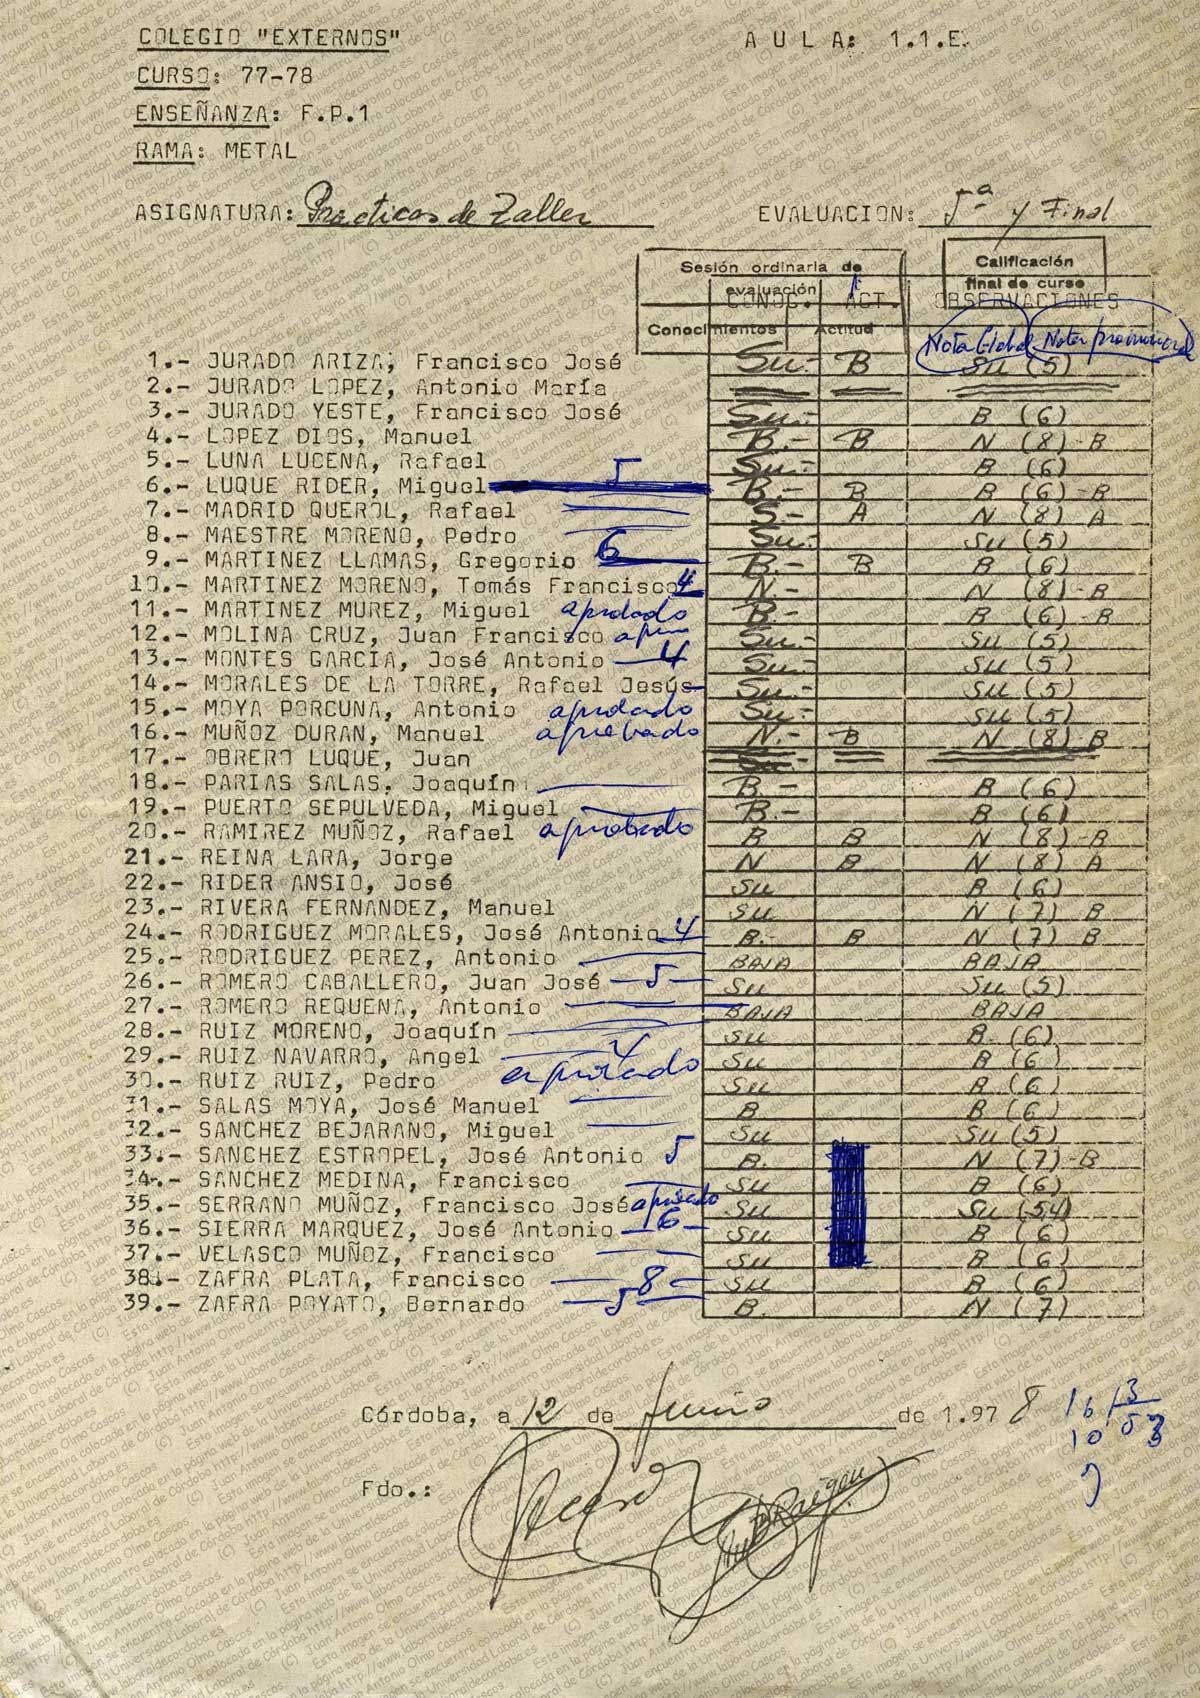 COLEGIO "EXTERNOS" A U L A: 1.1.E.
CURSO: 77-78
ENSEÑANZA: F.P.1
RAMA: METAL
ASIGNATURA: Practicas de Taller EVALUACION: 5ª y Final
Sesión ordinaria de evaluación Calificación final de curso
CONOC. ACT. OBSERVACIONES
Conocimientos Actitud Nota Global Nota provisional
1.- JURADO ARIZA, Francisco José Su.- B Su (5)
2.- JURADO LOPEZ, Antonio María
3.- JURADO YESTE, Francisco José Su.- B (6)
4.- LOPEZ DIOS, Manuel B.- B N (8)-B
5.- LUNA LUCENA, Rafael Su.- B (6)
6.- LUQUE RIDER, Miguel 5 B.- B B (6)-B
7.- MADRID QUEROL, Rafael S.- A N (8) A
8.- MAESTRE MORENO, Pedro Su.- Su (5)
9.- MARTINEZ LLAMAS, Gregorio 6 B.- B B (6)
10.- MARTINEZ MORENO, Tomás Francisco 4 N.- N (8)-B
11.- MARTINEZ MUREZ, Miguel aprobado B.- B (6) B
12.- MOLINA CRUZ, Juan Francisco Su.- Su (5)
13.- MONTES GARCIA, José Antonio 4 Su.- Su (5)
14.- MORALES DE LA TORRE, Rafael Jesús Su.- Su (5)
15.- MOYA PORCUNA, Antonio aprobado Su.- Su (5)
16.- MUÑOZ DURAN, Manuel aprobado N.- B N (8)-B
17.- OBRERO LUQUE, Juan
18.- PARIAS SALAS, Joaquín B.- B (6)
19.- PUERTO SEPULVEDA, Miguel B.- B (6)
20.- RAMIREZ MUÑOZ, Rafael aprobado B B N (8)-B
21.- REINA LARA, Jorge N B N (8) A
22.- RIDER ANSIO, José Su B (6)
23.- RIVERA FERNANDEZ, Manuel Su N (7) B
24.- RODRIGUEZ MORALES, José Antonio 4 B.- B N (7) B
25.- RODRIGUEZ PEREZ, Antonio BAJA BAJA
26.- ROMERO CABALLERO, Juan José 5 Su Su (5)
27.- ROMERO REQUENA, Antonio BAJA BAJA
28.- RUIZ MORENO, Joaquín Su B (6)
29.- RUIZ NAVARRO, Angel 4 Su B (6)
30.- RUIZ RUIZ, Pedro aprobado Su B (6)
31.- SALAS MOYA, José Manuel B B (6)
32.- SANCHEZ BEJARANO, Miguel Su Su (5)
33.- SANCHEZ ESTROPEL, José Antonio 5 B. N (7)-B
34.- SANCHEZ MEDINA, Francisco Su B (6)
35.- SERRANO MUÑOZ, Francisco José aprobado Su Su
36.- SIERRA MARQUEZ, José Antonio 6 Su B (6)
37.- VELASCO MUÑOZ, Francisco Su B (6)
38.- ZAFRA PLATA, Francisco 8 Su B (6)
39.- ZAFRA POYATO, Bernardo 5 B. N (7)
Córdoba, a 12 de Junio de 1.978
Fdo.: